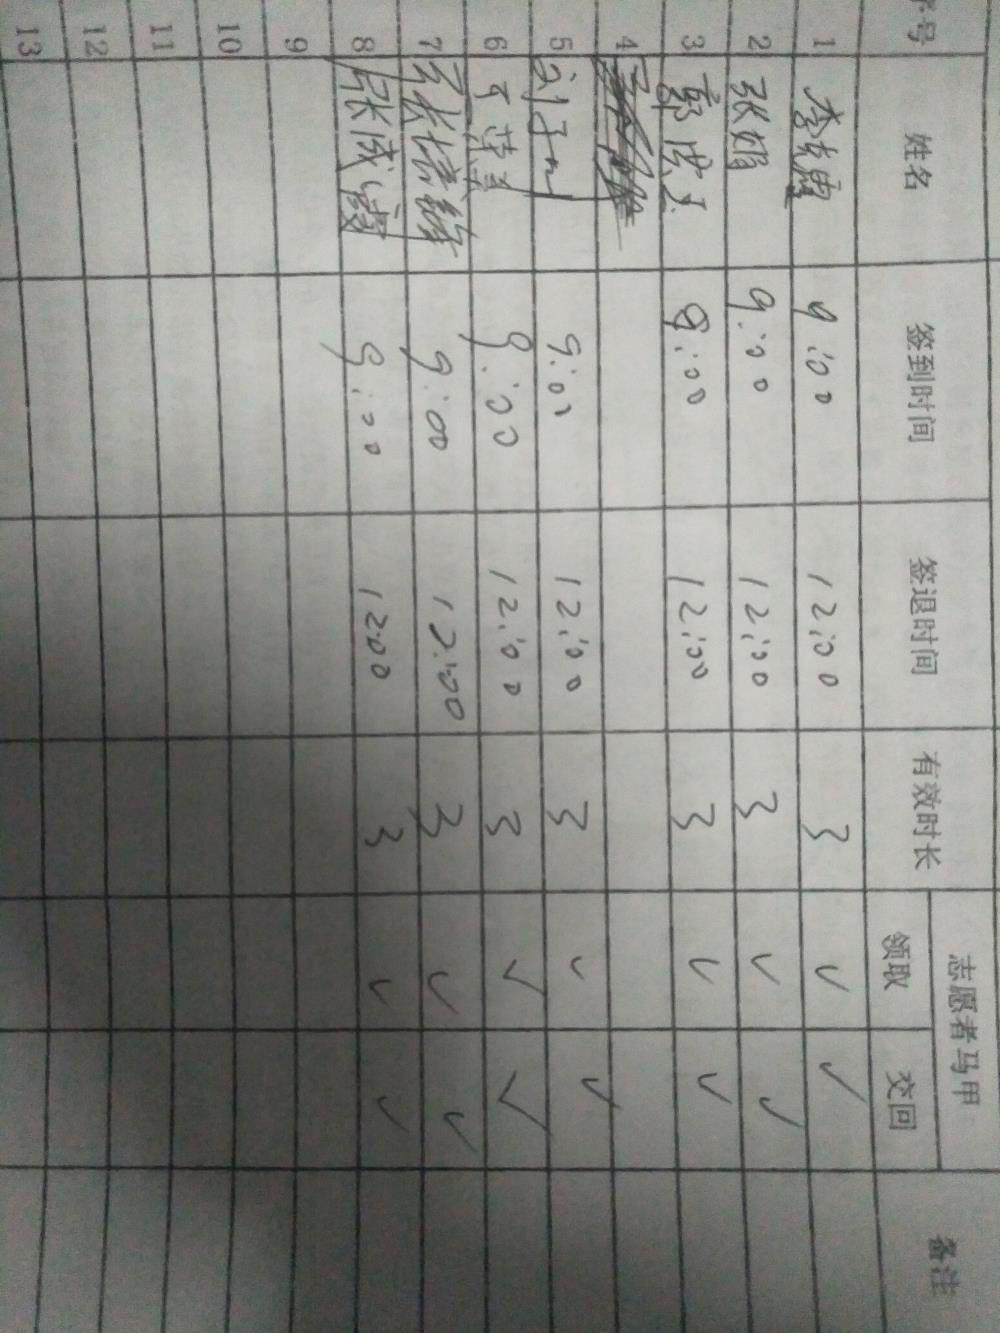 序号 姓名 签到时间 签退时间 有效时长 志愿者马甲 备注
领取 交回
1 9:00 12:00 3 ✓ ✓
2 张娟 9:00 12:00 3 ✓ ✓
3 郭 8:00 12:00 3 ✓ ✓
4
5 刘子 9:00 12:00 3 ✓ ✓
6 9:00 12:00 3 ✓ ✓
7 9:00 12:00 3 ✓ ✓
8 张成霞 9:00 1200 3 ✓ ✓
9
10
11
12
13